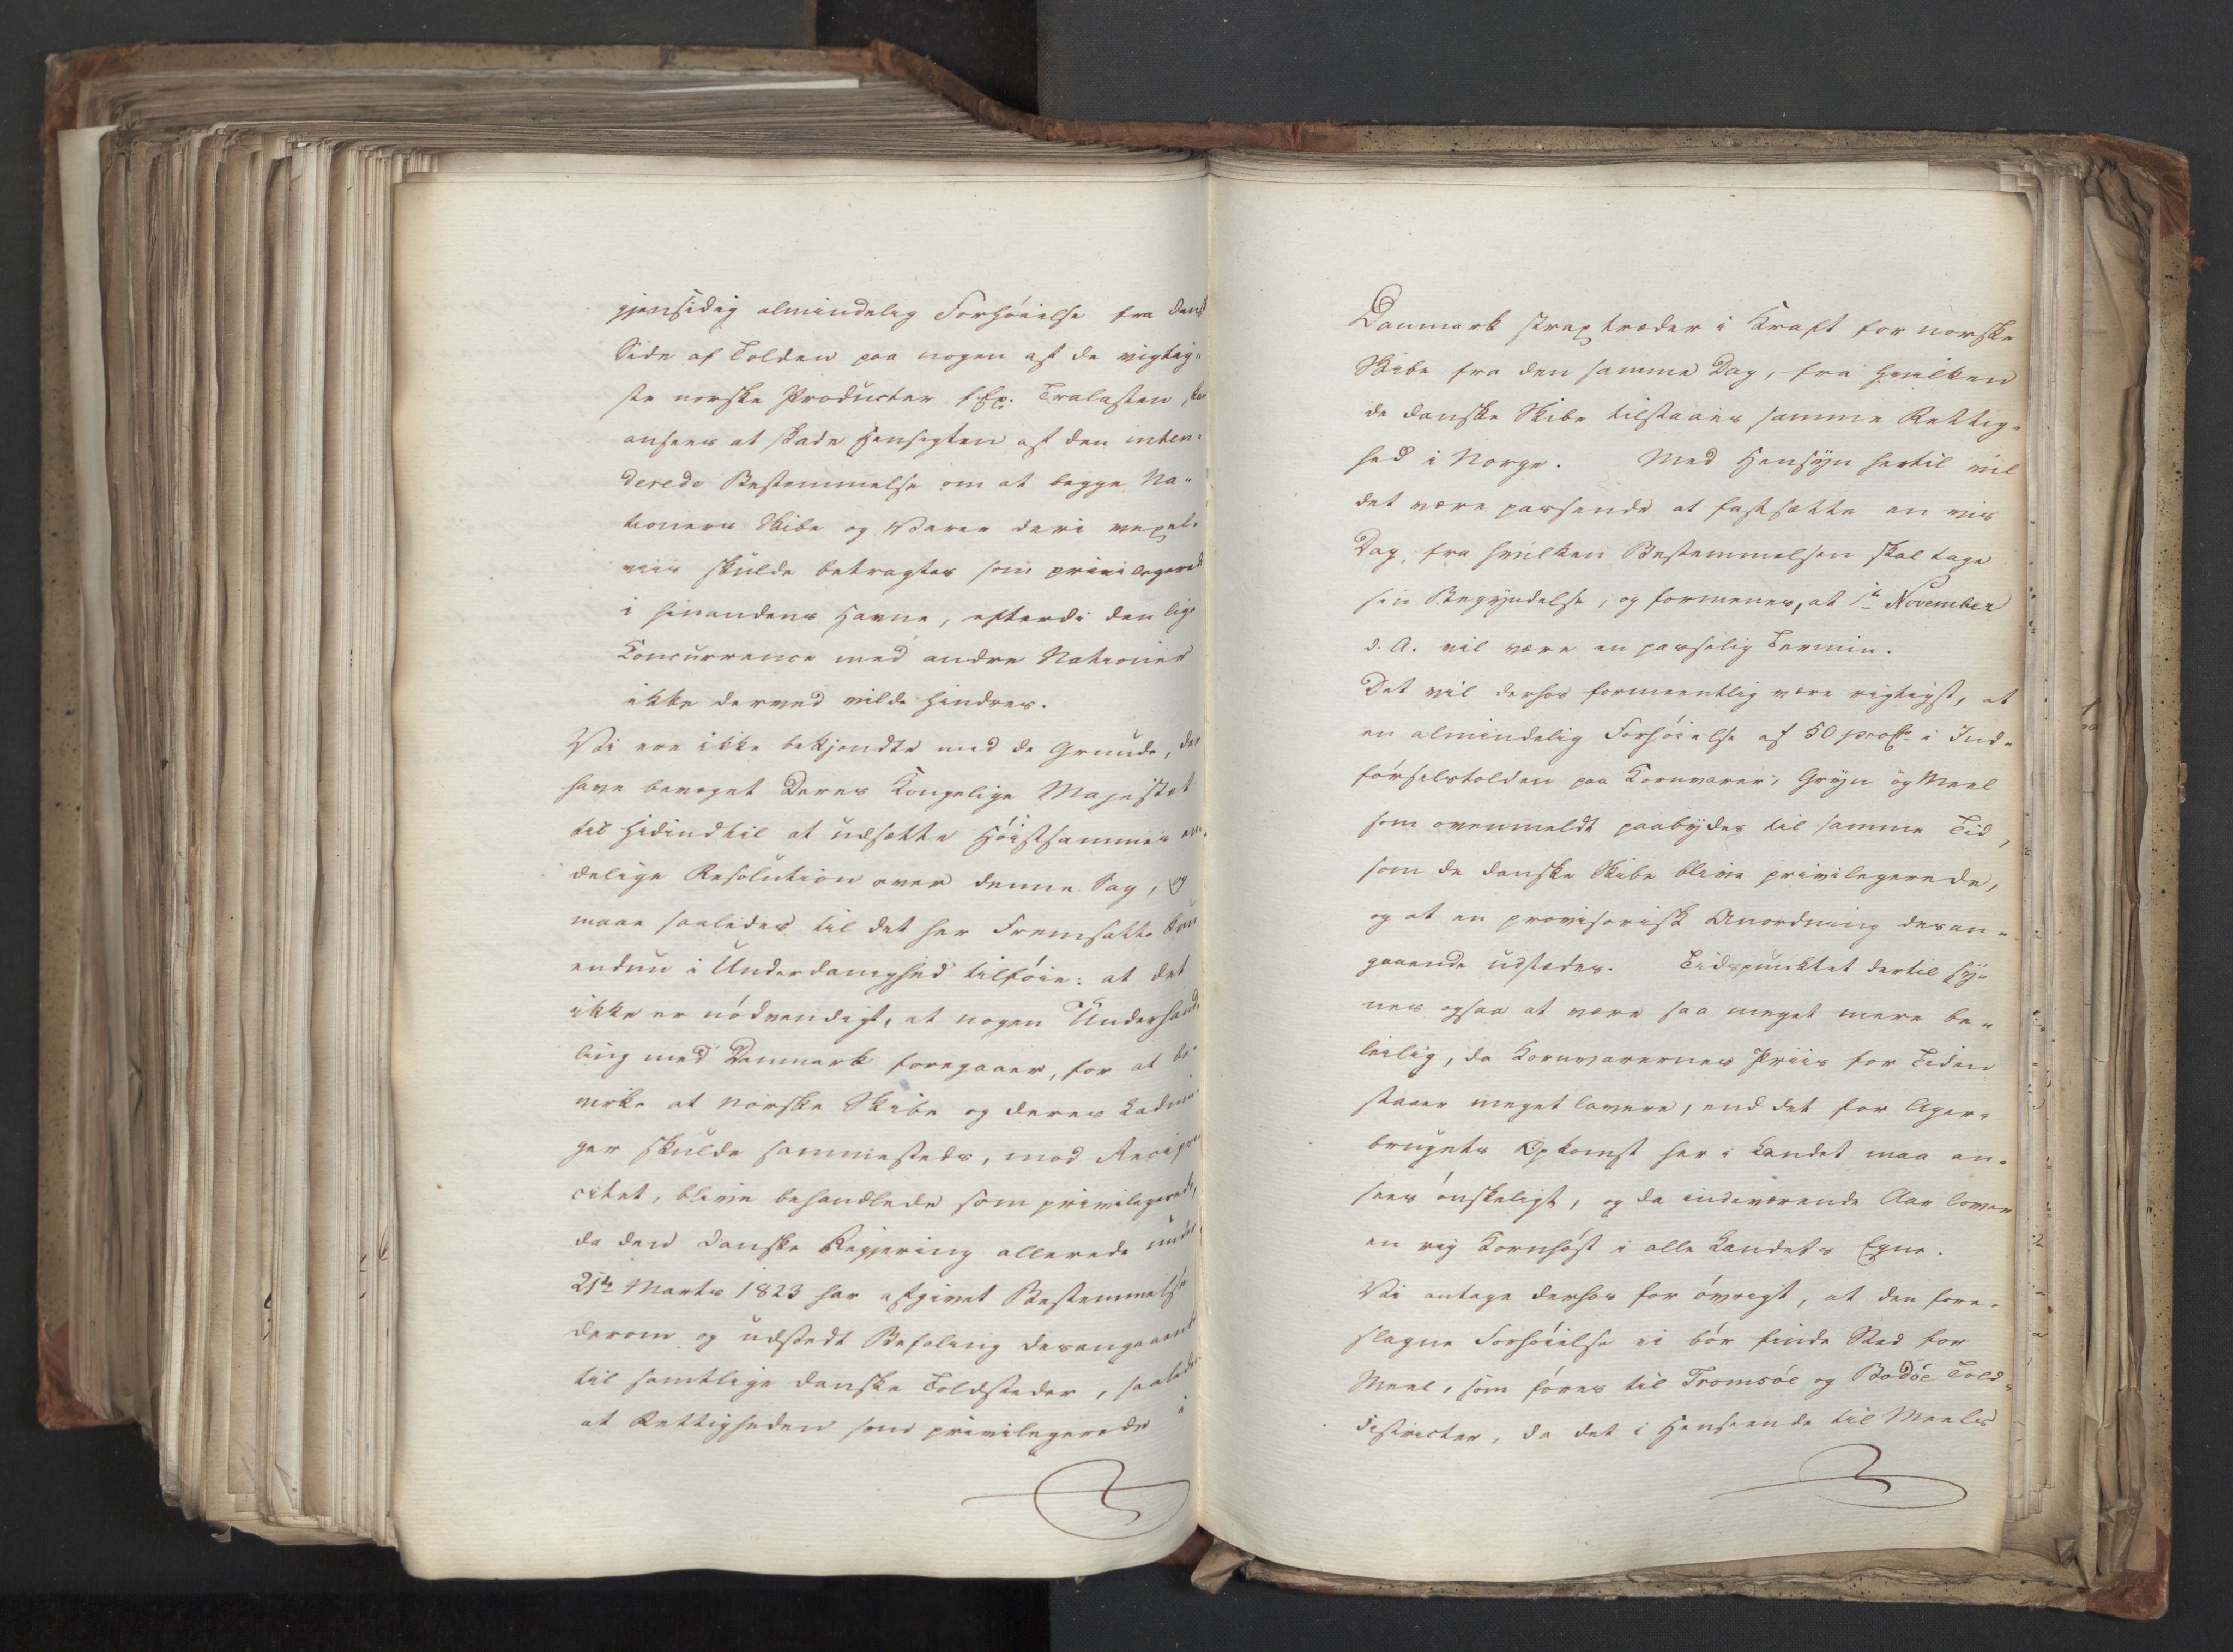 gjensidig almindelig Forhøielse fra dansk
Side af Tolden paa nogen af de vigtig-
ste norske Producter f. Ex. Trælasten, kan
ansees at skade Hensigten af den inten-
derede Bestemmelse om at begge Na-
tioners Skibe og Varer deri vexel-
viis skulde betragtes som privilegerede
i hinandens Havne, efterdi den lige
Concurrence med andre Nationer
ikke derved vilde hindres.
Vi ere ikke bekjendte med de Grunde, der
have bevæget Deres Kongelige Majestæt
til hidindtil at udsætte Høistsammes en-
delige Resolution over denne Sag, og
maae saaledes til det her Fremsatte kun
endnu i Underdanighed tilføie: at det
ikke er nødvendigt, at nogen Underhand-
ling med Danmark foregaaer, for at be-
virke at norske Skibe og deres Ladnin-
ger skulde sammesteds, mod Recipro-
citet, blive behandlede som privilegerede,
da den danske Regjering allerede under
21de Marts 1823 har afgivet Bestemmelse
derom og udstedt Befaling desangaaende
til samtlige danske Toldsteder, saaledes
at Rettigheden som privilegerede i
Danmark strax træder i Kraft for norske
Skibe fra den samme Dag, fra hvilken
de danske Skibe tilstaaes samme Rettig-
hed i Norge. Med Hensyn hertil vil
det være passende at fastsætte en vis
Dag, fra hvilken Bestemmelsen skal tage
sin Begyndelse, og formenes, at 1ste November
d. A. vil være en passelig Termin.
Det vil derhos formeentlig være rigtigst, at
en almindelig Forhøielse af 50 proCt i Ind-
førselstolden paa Kornvarer, Gryn og Meel
som ovenmeldt paabydes til samme Tid,
som de danske Skibe blive privilegerede,
og at en provisorisk Anordning desan-
gaaende udstedes. Tidspunktet dertil sy-
nes ogsaa at være saa meget mere be-
leilig, da Kornvarernes Priis for Tiden
staaer meget lavere, end det for Ager-
brugets Opkomst her i Landet maa an-
sees ønskeligt, og da indeværende Aar lover
en rig Kornhøst i alle Landets Egne.
Vi antage derhos for øvrigt, at den fore-
slagne Forhøielse ei bør finde Sted for
Meel, som føres til Tromsøe og Bodøe Told-
districter, da det i Henseende til Meelet